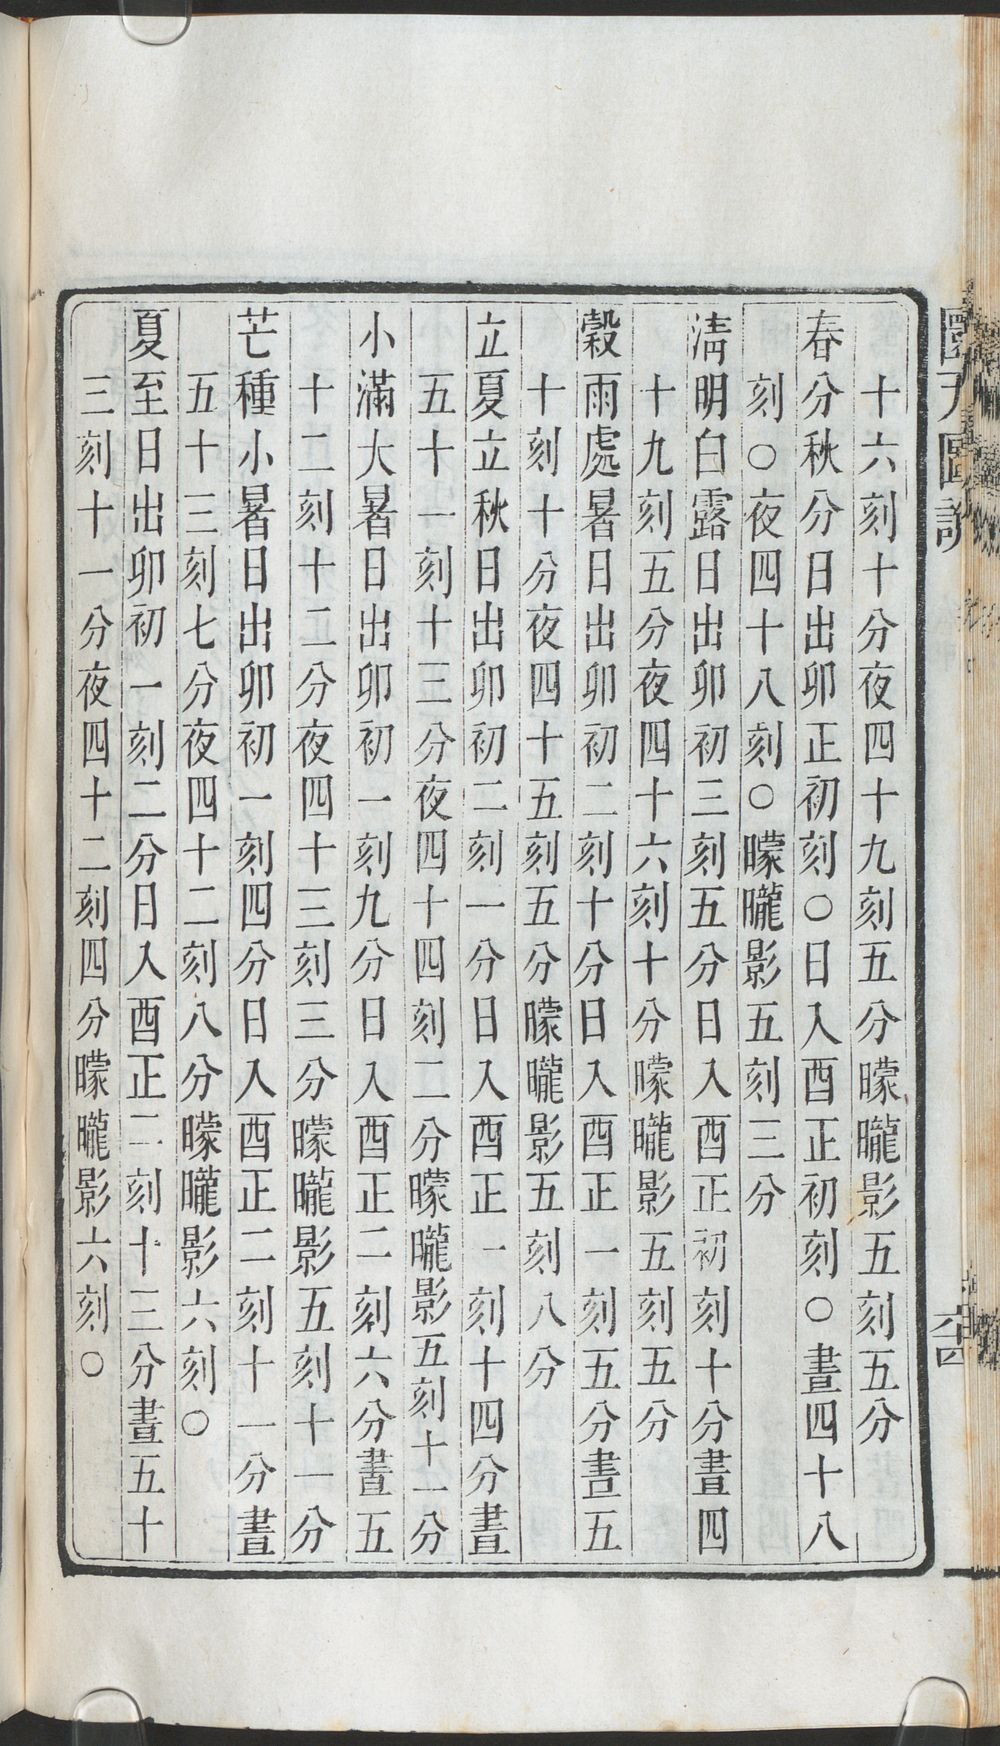 十六刻十分夜四十九刻五分曚曨影五刻五分
春分秋分日出卯正初刻〇日入酉正初刻〇晝四十八
刻〇夜四十八刻〇曚曨影五刻三分
淸明白露日出卯初三刻五分日入酉正初刻十分晝四
十九刻五分夜四十六刻十分曚曨影五刻五分
穀雨處暑日出卯初二刻十分日入酉正一刻五分晝五
十刻十分夜四十五刻五分曚曨影五刻八分
立夏立秋日出卯初二刻一分日入酉正一刻十四分晝
五十一刻十三分夜四十四刻二分曚曨影五刻十一分
小滿大暑日出卯初一刻九分日入酉正二刻六分晝五
十二刻十二分夜四十三刻三分曚曨影五刻十一分
芒種小暑日出卯初一刻四分日入酉正二刻十一分晝
五十三刻七分夜四十二刻八分曚曨影六刻〇
夏至日出卯初一刻二分日入酉正二刻十三分晝五十
三刻十一分夜四十二刻四分曚曨影六刻〇